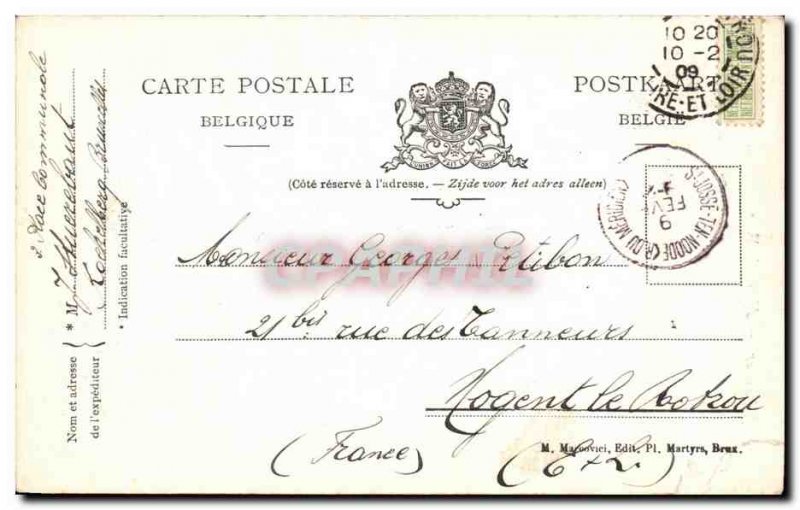 CARTE POSTALE
BELGIQUE
POSTKAART
BELGIË
L'UNION FAIT LA FORCE
(Côté réservé à l'adresse. — Zijde voor het adres alleen)
10 20
10 -2
09
RE-ET-LOIR
ST JOSSE-TEN-NOODE (R. DU MÉRIDIEN)
9
FEVR
Monsieur Georges
21 bis rue des Tanneurs
Nogent le Rotrou
(France)
(E & L.)
M. Marcovici, Edit. Pl. Martyrs, Brux.
Nom et adresse
de l'expéditeur
* M
2 Place Communale
Koekelberg Bruxelles
* Indication facultative
CPAPHIL